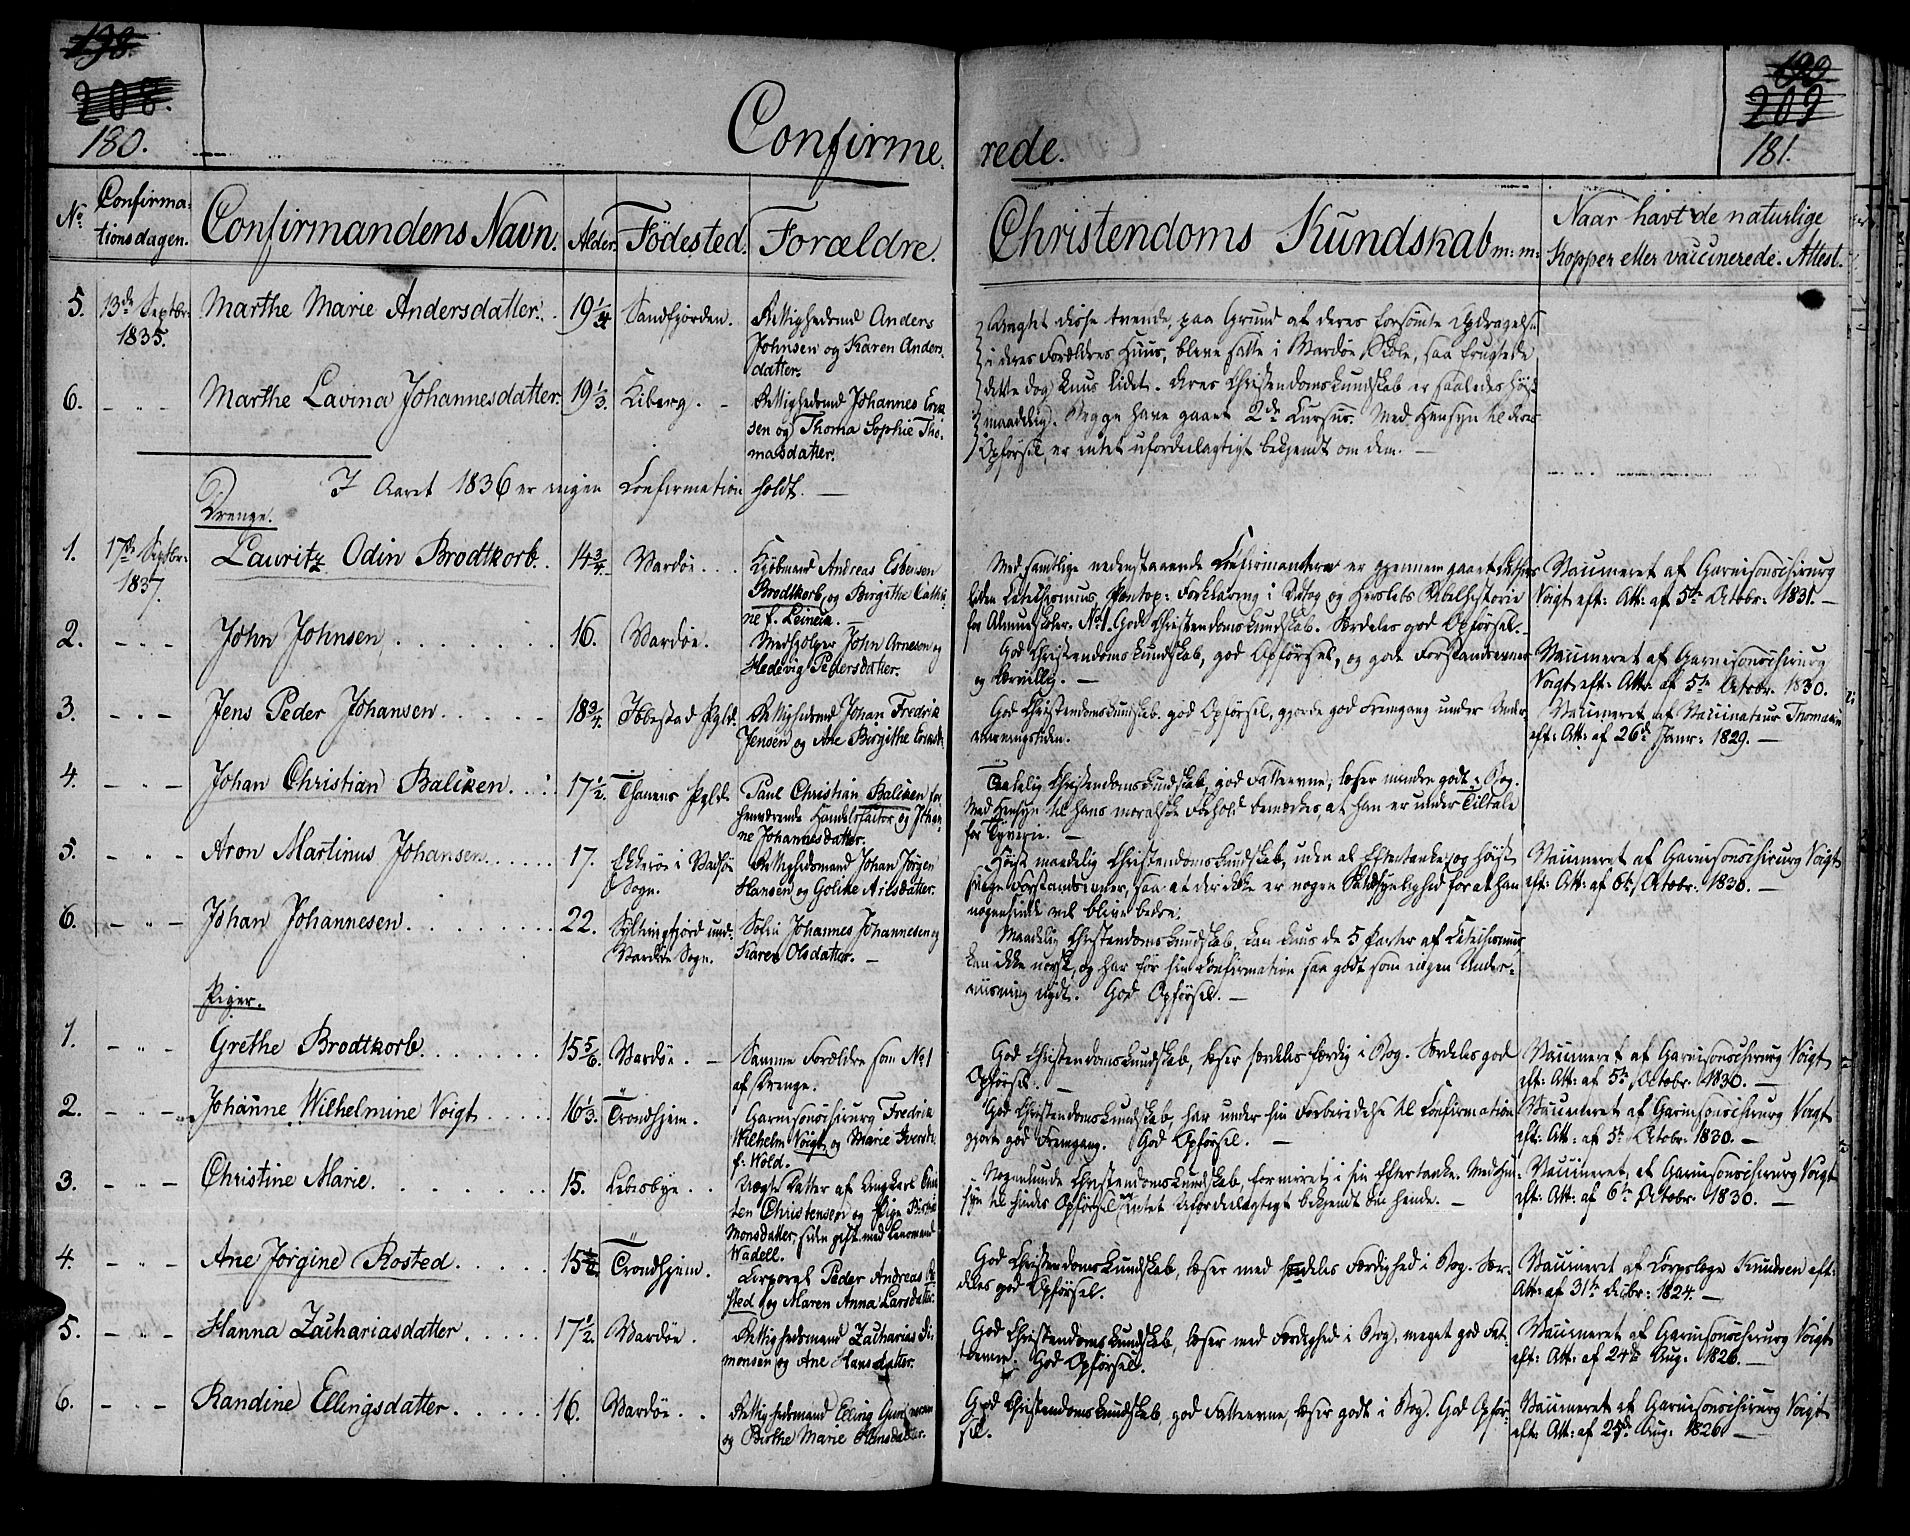 198.
208.
180.
Confirme.
rede.
199
209
181.
No. Confirmationsdagen. Confirmandens Navn. Alder. Födested. Forældre. Christendoms Kundskab m: m: Naar havt de naturlige
Kopper eller vaccinerede. Attest.
5. 13de Septbr: 1835. Marthe Marie Andersdatter. 19 1/4 Sandfjorden. Rettighedsmd Anders
Johnsen og Karen Anders
datter.
Uagtet disse tvende, paa Grund af deres forsömte Opdragelse
i deres Forældres Huus, bleve satte i Vardöe Skole, saa frugtede
dette dog kuns lidet. Deres Christendomskundskab er saaledes höist
maadelig. Begge have gaaet 2de Cursus. Med Hensyn til deres
Opförsel, er intet ufordeelagtigt bekjendt om dem. —
6. – „ – Marthe Lavina Johannesdatter. 19 1/3. Kiberg. – Rettighedsmd Johannes Erik
sen og Thoma Sophie Tho-
masdatter.
I Aaret 1836 er ingen Confirmation holdt. —
Drenge.
1. 17de Septbr: 1837. Lauritz Odin Brodtkorb. 14 3/4. Vardöe. Kjöbmand Andreas Esbensen
Brodtkorb, og Birgithe Cathri
ne f. Leineck. —
Med samtlige nedenstaaende Confirmanter er gjennemgaaet Luthers
liden Catechismus Pontop: Forklaring i Udtog og Herslebs Bibelhistorie
for Almueskoler. No 1. God Christendomskundskab. Særdeles god Opförsel. —
Vaccineret af Garnisonschirurg
Voigt eft: Att: af 5te Octobr: 1831. —
2. – „ – John Johnsen 16. Vardöe. Medhjelper John Arnesen og
Hedevig Pedersdatter.
God Christendomskundskab, god Opförsel, og gode Forstandsevner
og lærvillig. —
Vaccineret af Garnisonschirurg
Voigt eft: Att: af 5te Octobr. 1830.
3. – „ – Jens Peder Johansen. 18 3/4. Ibbestad Pgld. Rettighedsmd Johan Fredrik
Jensen og Ane Birgithe
God Christendomskundskab. god Opförsel, gjorde god Fremgang under Under-
viisningstiden.
Vaccineret af Vaccinateur Thomas
eft: Att: af 26de Janr: 1829. —
4. – „ – Johan Christian Balcken. 17 1/2. Thanens Pgld. Paul Christian Balcken for
henværende Handelsfactor og Johan-
ne Johannesdatter.
Taalelig Christendomskundskab, god Fatteevne, læser mindre godt i Bog.
Med Hensyn til hans moralske Forhold bemærkes, at han er under Tiltale
for Tyverie. —
5. – „ – Aron Martinus Johansen. 17. Ekkeröe i Vadsöe
Sogn.
Rettighedsmand Johan Jörgen
Hansen og Golike Arilsdatter.
Höist maadelig Christendomskundskab, uden al Eftertanke, og höist
slöge Forstandsevner, saa at der ikke er nogen Sandsynlighed for at han
nogensinde vil blive bedre.
Vaccineret af Garnisonschirurg Voigt
eft: Att: af 6te Octobr: 1830. —
6. – „ – Johan Johannesen. 22. Syltringfjord und:
Vardöe Sogn.
Söfin Johannes Johannesen og
Karen Olsdatter. —
Maadelig Christendomskundskab, kan kuns de 5 Parter af Catechismus
kan ikke norsk, og har för sin Confirmation saa godt som ingen Under-
viisning nydt. God Opförsel. —
Piger.
1. – „ – Grethe Brodtkorb. 15 5/6. Vardöe. – Samme Forældre som No 1
af Drenge.
God Christendomskundskab, læser særdeles færdig i Bog. Særdeles god
Opförsel. —
Vaccineret af Garnisonschirurg Voigt
eft: Att: af 5te Octobr: 1830. —
2. – „ – Johanne Wilhelmine Voigt 16 1/3. Trondhjem. Garnisonschirurg Fredrik
Wilhelm Voigt og Marie Iversdr.
f: Wold.
God Christendomskundskab, har under sin Forberedelse til Confirmation
gjort god Fremgang. God Opförsel. —
Vaccineret af Garnisonschirurg Voigt
eft: Att: af 5te Octobr: 1830. —
3. – „ – Christine Marie. 15. Lebesbye. Uægte Datter af Ungkarl
ten Christensen og Pige
Monsdatter, siden gift med Lensmand
Wadell.
Nogenlunde Christendomskundskab, forvirret i sin Eftertanke. Med Hen-
syn til hendes Opförsel intet Ufordeelagtigt bekjendt om hende. —
Vaccineret af Garnisonschirurg Voigt
eft: Att: af 6te Octobr: 1830. —
4. – „ – Ane Jörgine Rosted. 15 Trondhjem. Corporal Peder Andreas Ro-
sted og Maren Anna Larsdatter.
God Christendomskundskab, læser med særdeles Færdighed i Bog. Sær-
deles god Opförsel.
Vaccineret af Corpslæge Knudsen eft:
Att: af 31te Decbr: 1824. —
5. – „ – Hanna Zachariasdatter 17 1/2. Vardöe. Rettighedsmand Zacharias Si-
monsen og Ane Hansdatter.
God Christendomskundskab, læser med Færdighed i Bog, meget god Fat-
teevne. God Opförsel.
Vaccineret af Garnisonschirurg Voigt
eft: Att: af 24de Aug. 1826. —
6. – „ – Randine Ellingsdatter 16. Vardöe. Rettighedsmand Elling
og Birthe Marie Hansdatter.
God Christendomskundskab, god Fatteevne, læser godt i Bog. God Opför-
sel.
Vaccineret af Garnisonschirurg Voigt
eft: Att: af 25de Aug: 1826. —